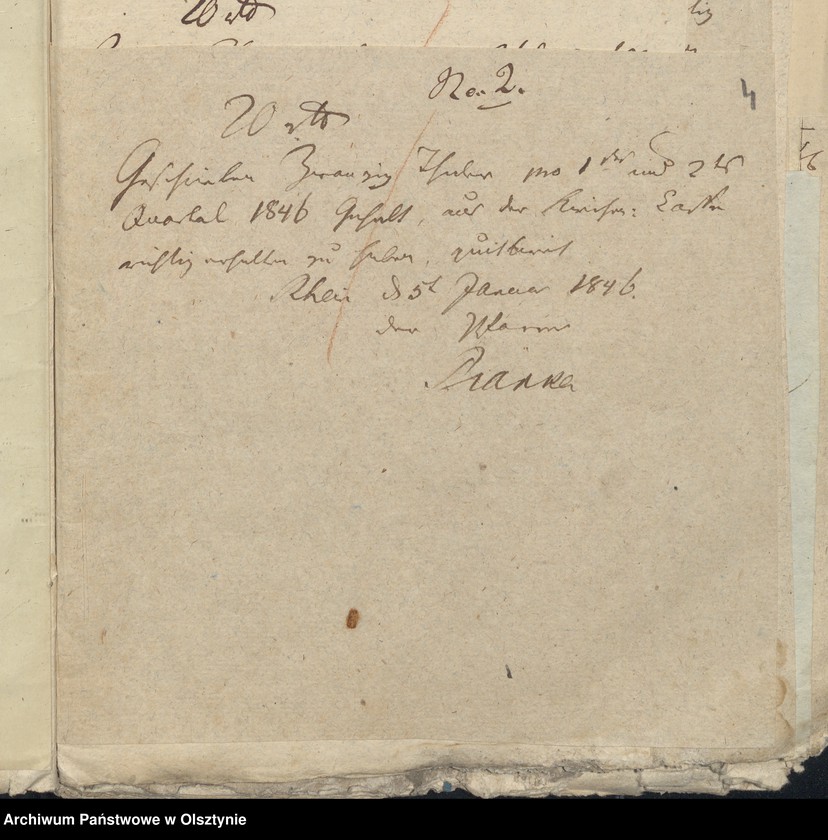 20 rtl
No. 2.
4
20 rtl
Geschrieben Zwanzig Thaler pro 1ter und 2ter
Quartal 1846 Gehalt, aus der Kirchen: Casse
richtig erhalten zu haben, quittirt
Rhein d 5t Januar 1846.
der Pfarrer
Archiwum Państwowe w Olsztynie